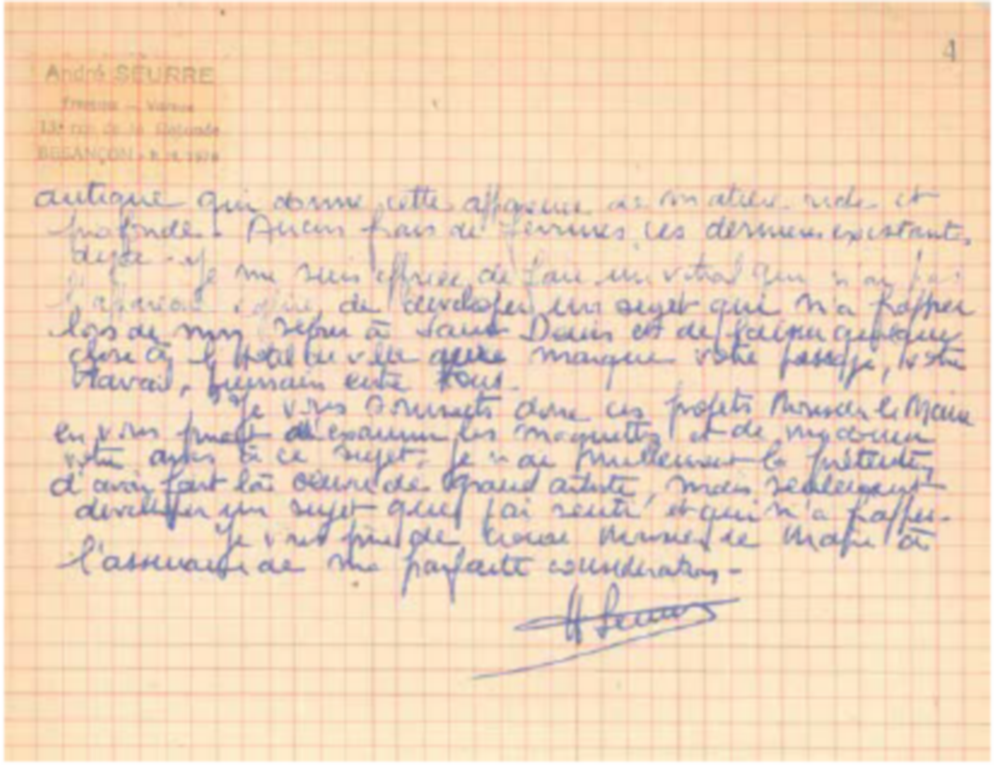 4
André SEURRE
BESANÇON
antique qui donne cette apparence de matière riche et
profonde. Aucun frais de ferrures, ces dernières existantes
déjà. Je me suis efforcé de faire un vitrail qui
de développer un sujet qui m'a frapper
lors de mon séjour à Saint Denis et de laisser quelque
chose à l'Hotel de ville marque votre passage, votre
travail, humain entre tous.
Je vous soumets donc ces projets Monsieur le Maire
en vous priant d'examiner les maquettes et de me donner
votre avis à ce sujet. Je n'ai nullement la prétention
d'avoir fait là oeuvre de grand artiste, mais seulement
développer un sujet que j'ai senti et qui m'a frapper.
Je vous prie de croire Monsieur le Maire à
l'assurance de ma parfaite considération -
Seurre